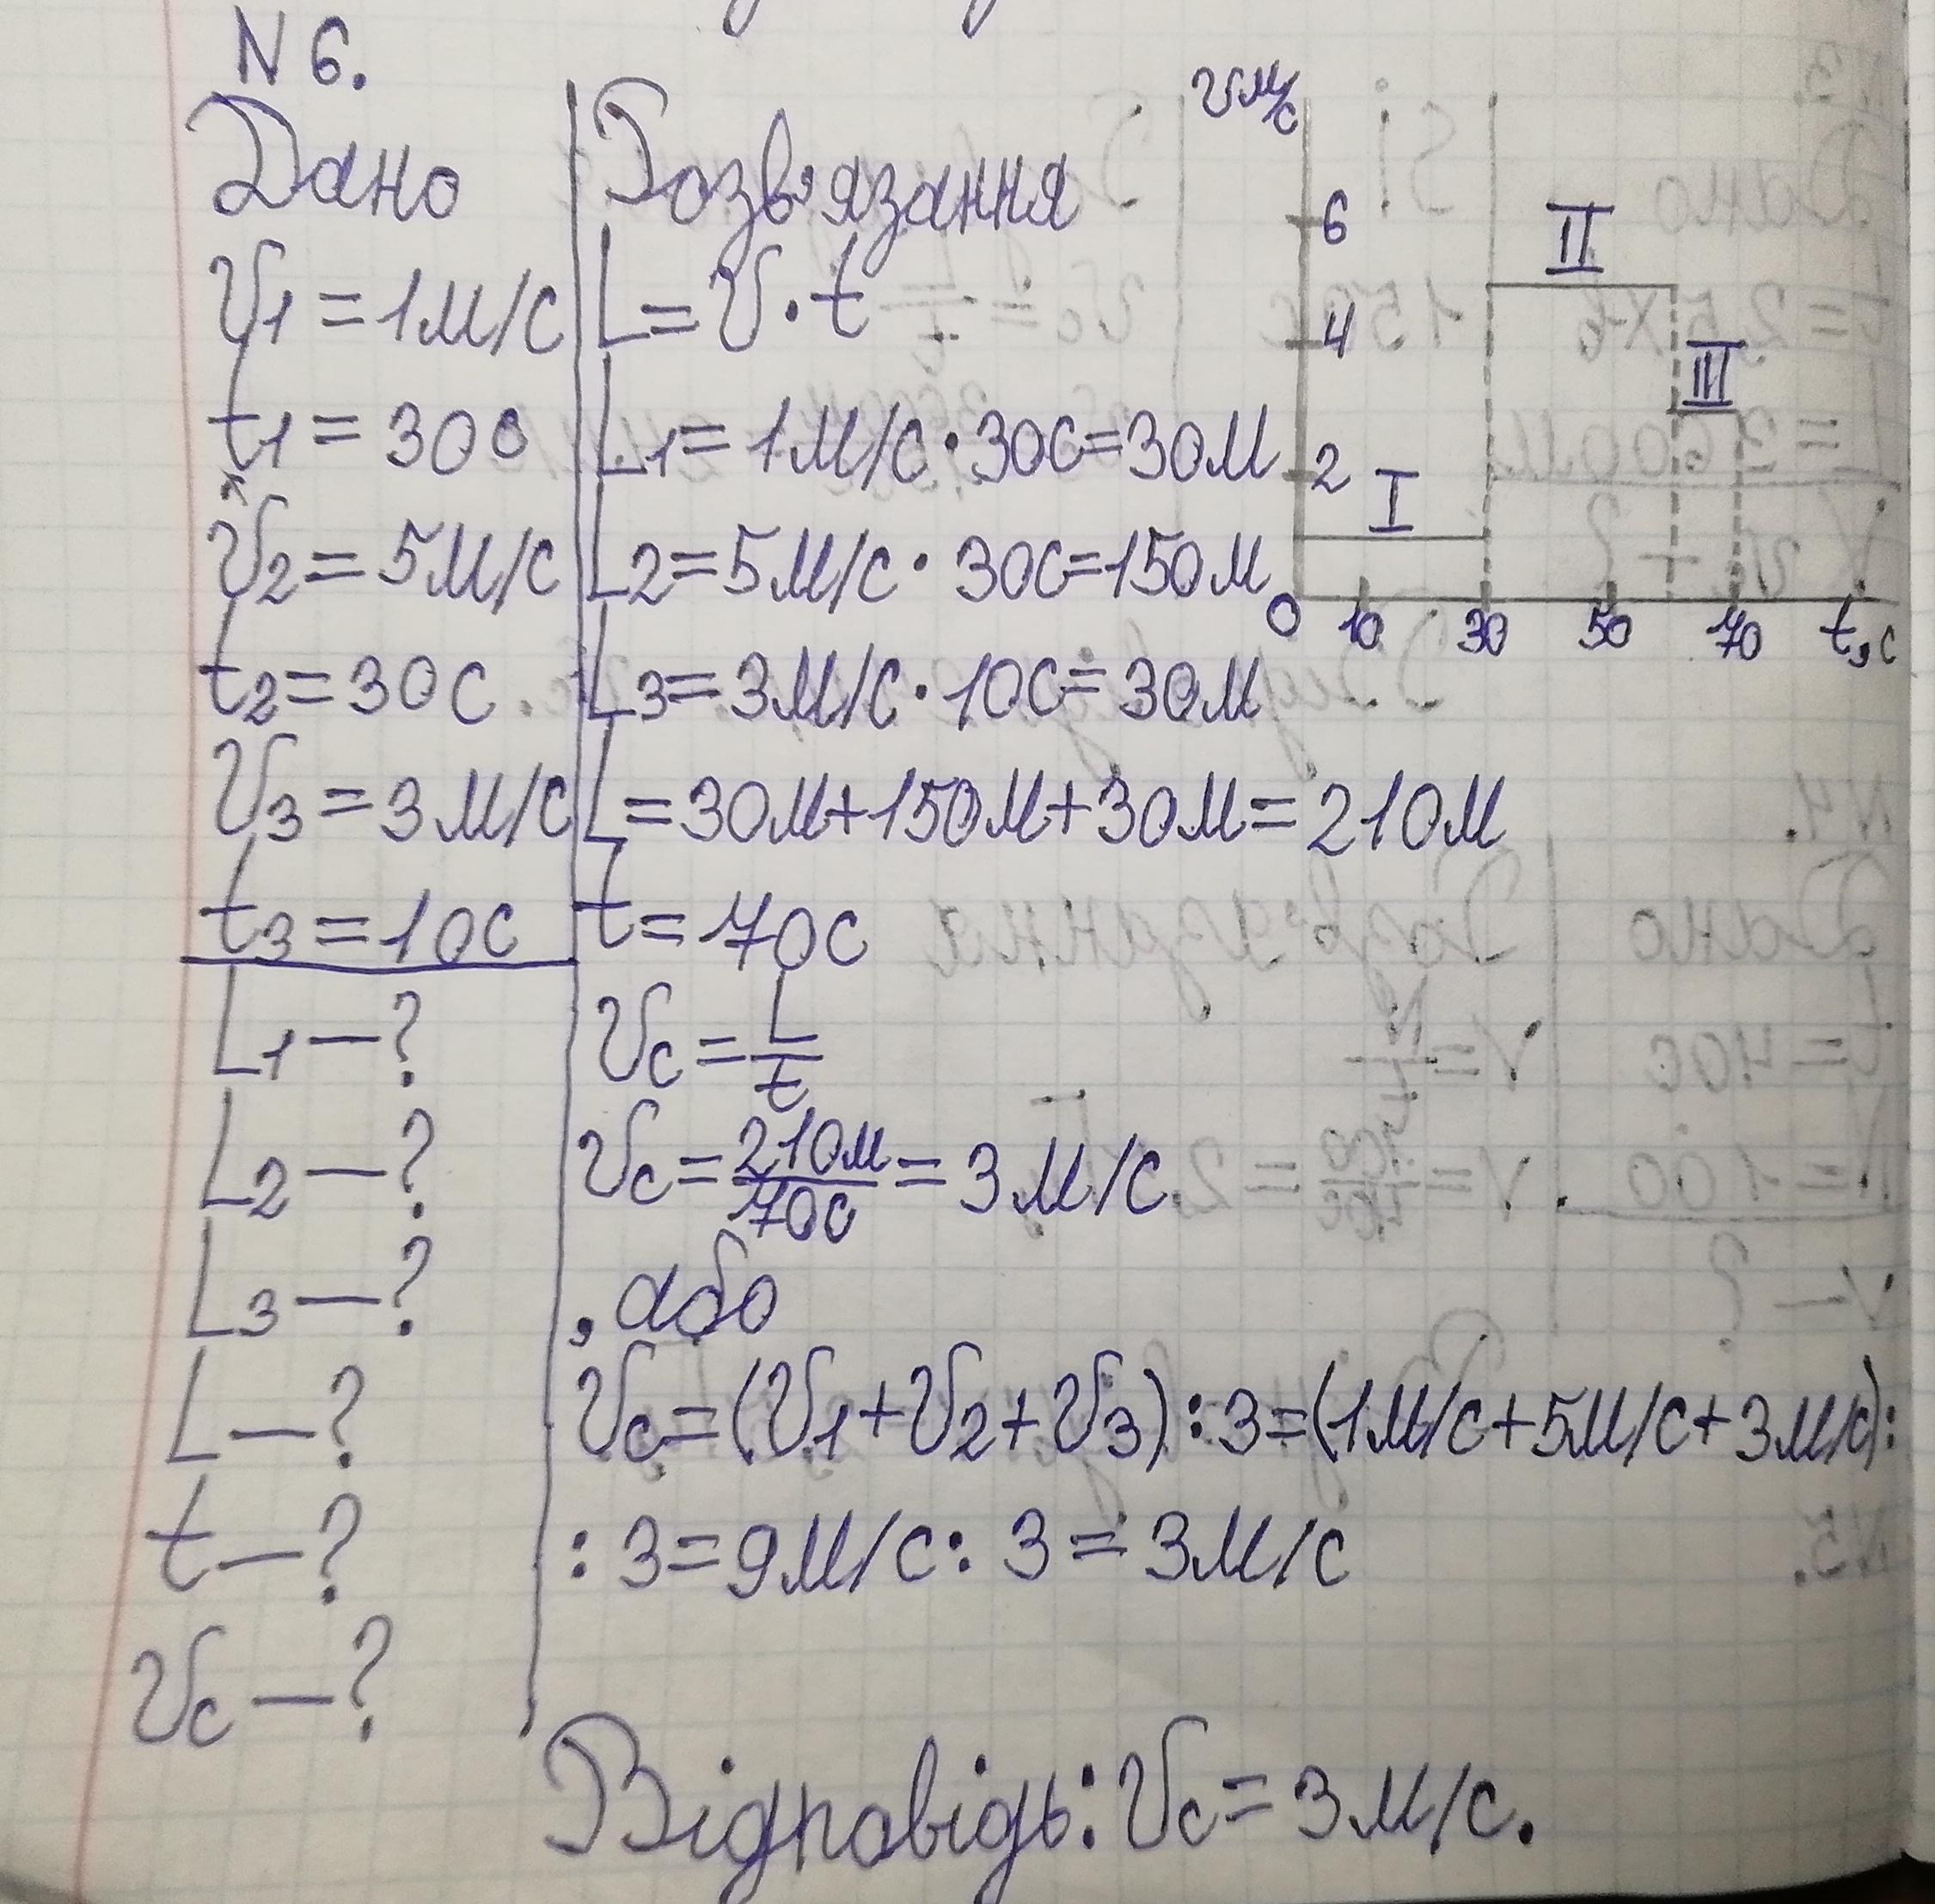 N 6.
Дано
V1 = 1м/с
t1 = 30с
V2 = 5м/с
t2 = 30с
V3 = 3м/с
t3 = 10с
L1 — ?
L2 — ?
L3 — ?
L — ?
t — ?
Vc — ?
Розв'язання
L = V · t
L1 = 1м/с · 30с = 30м
L2 = 5м/с · 30с = 150м
L3 = 3м/с · 10с = 30м
L = 30м + 150м + 30м = 210м
t = 70с
Vc = L/t
Vc = 210м/70с = 3м/с
, або
Vc = (V1 + V2 + V3) : 3 = (1м/с + 5м/с + 3м/с) :
: 3 = 9м/с : 3 = 3м/с
Відповідь: Vc = 3м/с.
V м/с
6
4
2
0
I
II
III
10 30 50 70 t, c